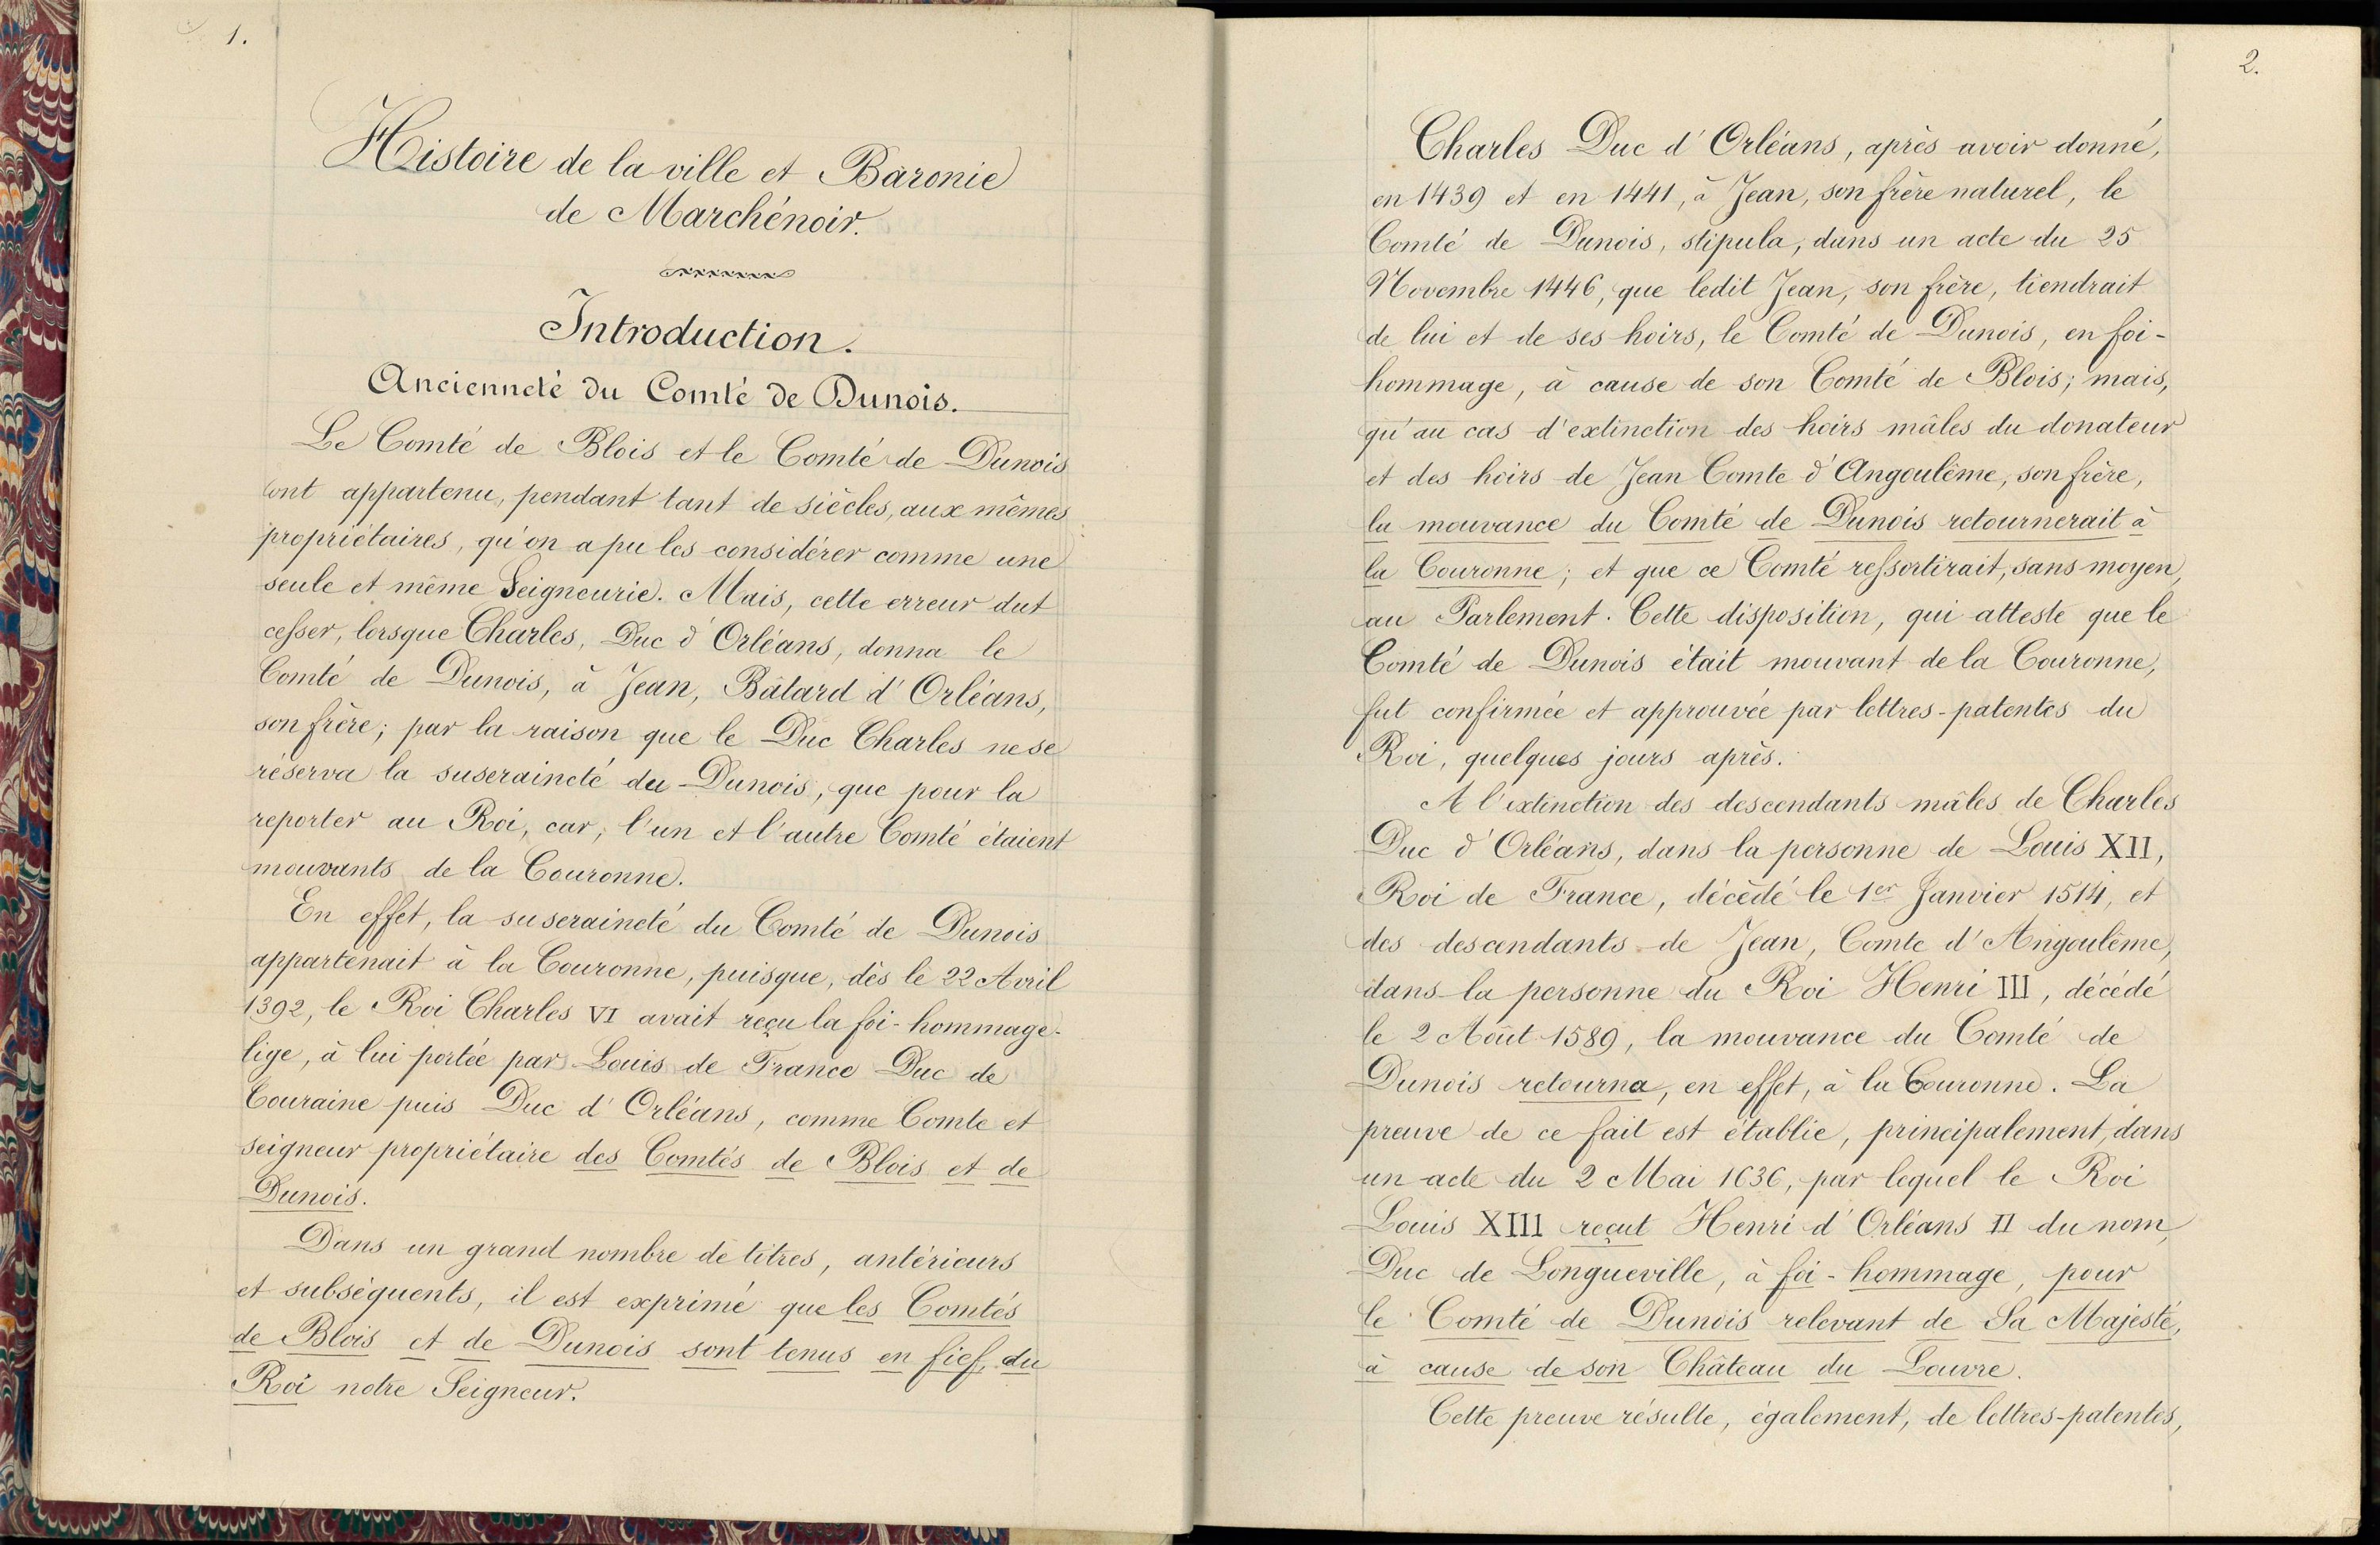 1.
Histoire de la ville et Baronie
de Marchénoir.
Introduction.
Ancienneté du Comté de Dunois.
Le Comté de Blois et le Comté de Dunois
ont appartenu, pendant tant de siècles, aux mêmes
propriétaires, qu'on a pu les considérer comme une
seule et même Seigneurie. Mais, cette erreur dut
cesser, lorsque Charles, Duc d'Orléans, donna le
Comté de Dunois, à Jean, Bâtard d'Orléans,
son frère; par la raison que le Duc Charles ne se
réserva la suseraineté du Dunois, que pour la
reporter au Roi, car, l'un et l'autre Comté étaient
mouvants de la Couronne.
En effet, la suseraineté du Comté de Dunois
appartenait à la Couronne, puisque, dès le 22 Avril
1392, le Roi Charles VI avait reçu la foi-hommage-
lige, à lui portée par Louis de France Duc de
Touraine puis Duc d'Orléans, comme Comte et
seigneur propriétaire des Comtés de Blois et de
Dunois.
Dans un grand nombre de titres, antérieurs
et subséquents, il est exprimé que les Comtés
de Blois et de Dunois sont tenus en fief, du
Roi notre Seigneur.
2.
Charles Duc d'Orléans, après avoir donné,
en 1439 et en 1441, à Jean, son frère naturel, le
Comté de Dunois, stipula, dans un acte du 25
Novembre 1446, que ledit Jean, son frère, tiendrait
de lui et de ses hoirs, le Comté de Dunois, en foi-
hommage, à cause de son Comté de Blois; mais,
qu'au cas d'extinction des hoirs mâles du donateur
et des hoirs de Jean Comte d'Angoulême, son frère,
la mouvance du Comté de Dunois retournerait à
la Couronne; et que ce Comté ressortirait, sans moyen,
au Parlement. Cette disposition, qui atteste que le
Comté de Dunois était mouvant de la Couronne,
fut confirmée et approuvée par lettres-patentes du
Roi, quelques jours après.
A l'extinction des descendants mâles de Charles
Duc d'Orléans, dans la personne de Louis XII,
Roi de France, décédé le 1er Janvier 1514, et
des descendants de Jean, Comte d'Angoulême,
dans la personne du Roi Henri III, décédé
le 2 Août 1589, la mouvance du Comté de
Dunois retourna, en effet, à la Couronne. La
preuve de ce fait est établie, principalement, dans
un acte du 2 Mai 1636, par lequel le Roi
Louis XIII reçut Henri d'Orléans II du nom,
Duc de Longueville, à foi-hommage, pour
le Comté de Dunois relevant de Sa Majesté,
à cause de son Château du Louvre.
Cette preuve résulte, également, de lettres-patentes,